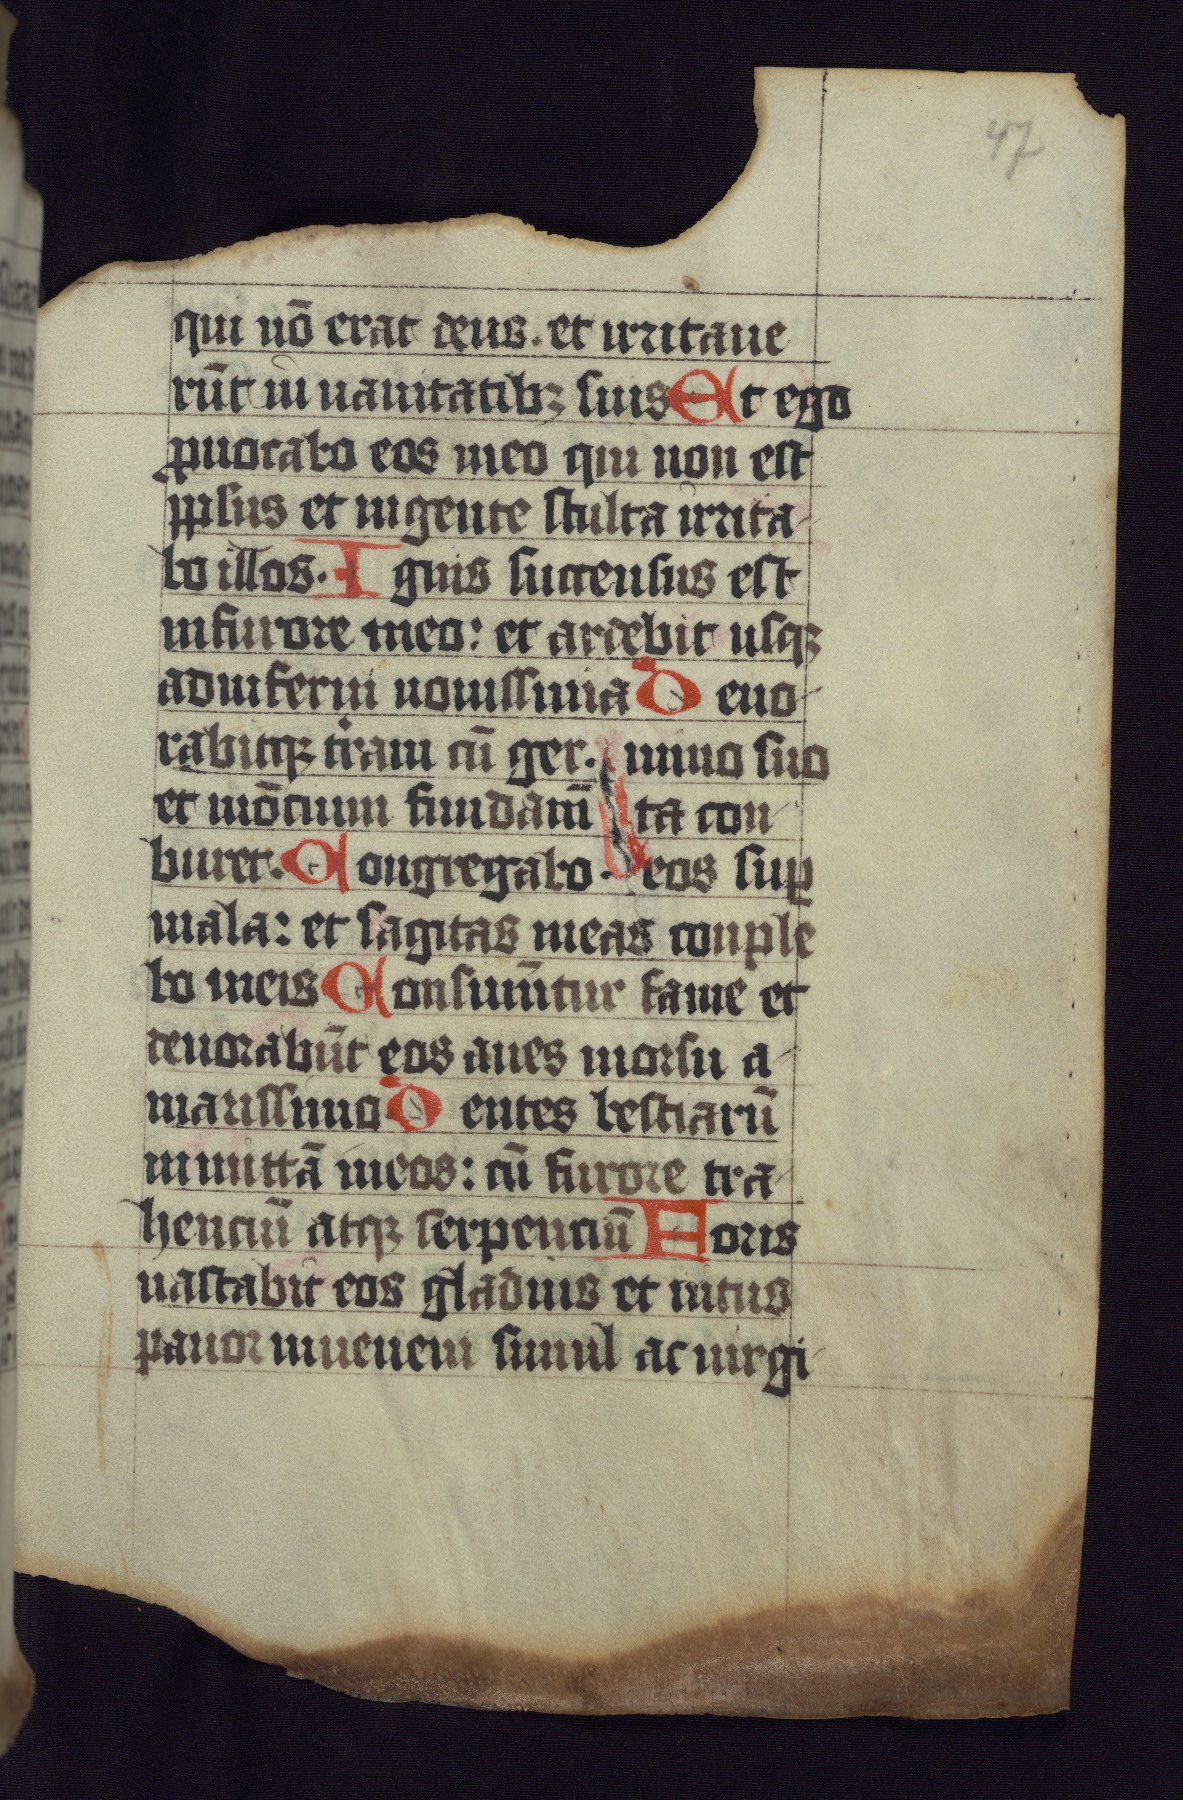 47
qui nō erat deus. et irritaue
rūt in uanitatibꝫ suis Et ego
ꝓuocabo eos meo qui non est
ppłsus et ingente stulta irrita-
bo illos. Ignis succensus est
infurore meo: et ardebit usqꝫ
adinferni nouissima Deuo-
rabitqꝫ t̄ram cū ger. mino suo
et mōcium fundam̄ ta con-
buret. Congregabo. eos suꝑ
mala: et sagitas meas conple
bo meis Consum̄tur fame et
deuorabūt eos aues morsu a-
marissimo Dentes bestiarū
inmittā ineos: cū furore tra-
henciū atqꝫ serpenciū Foris
uastabit eos gladius et intus
pauor iuuenem simul ac uirgi-